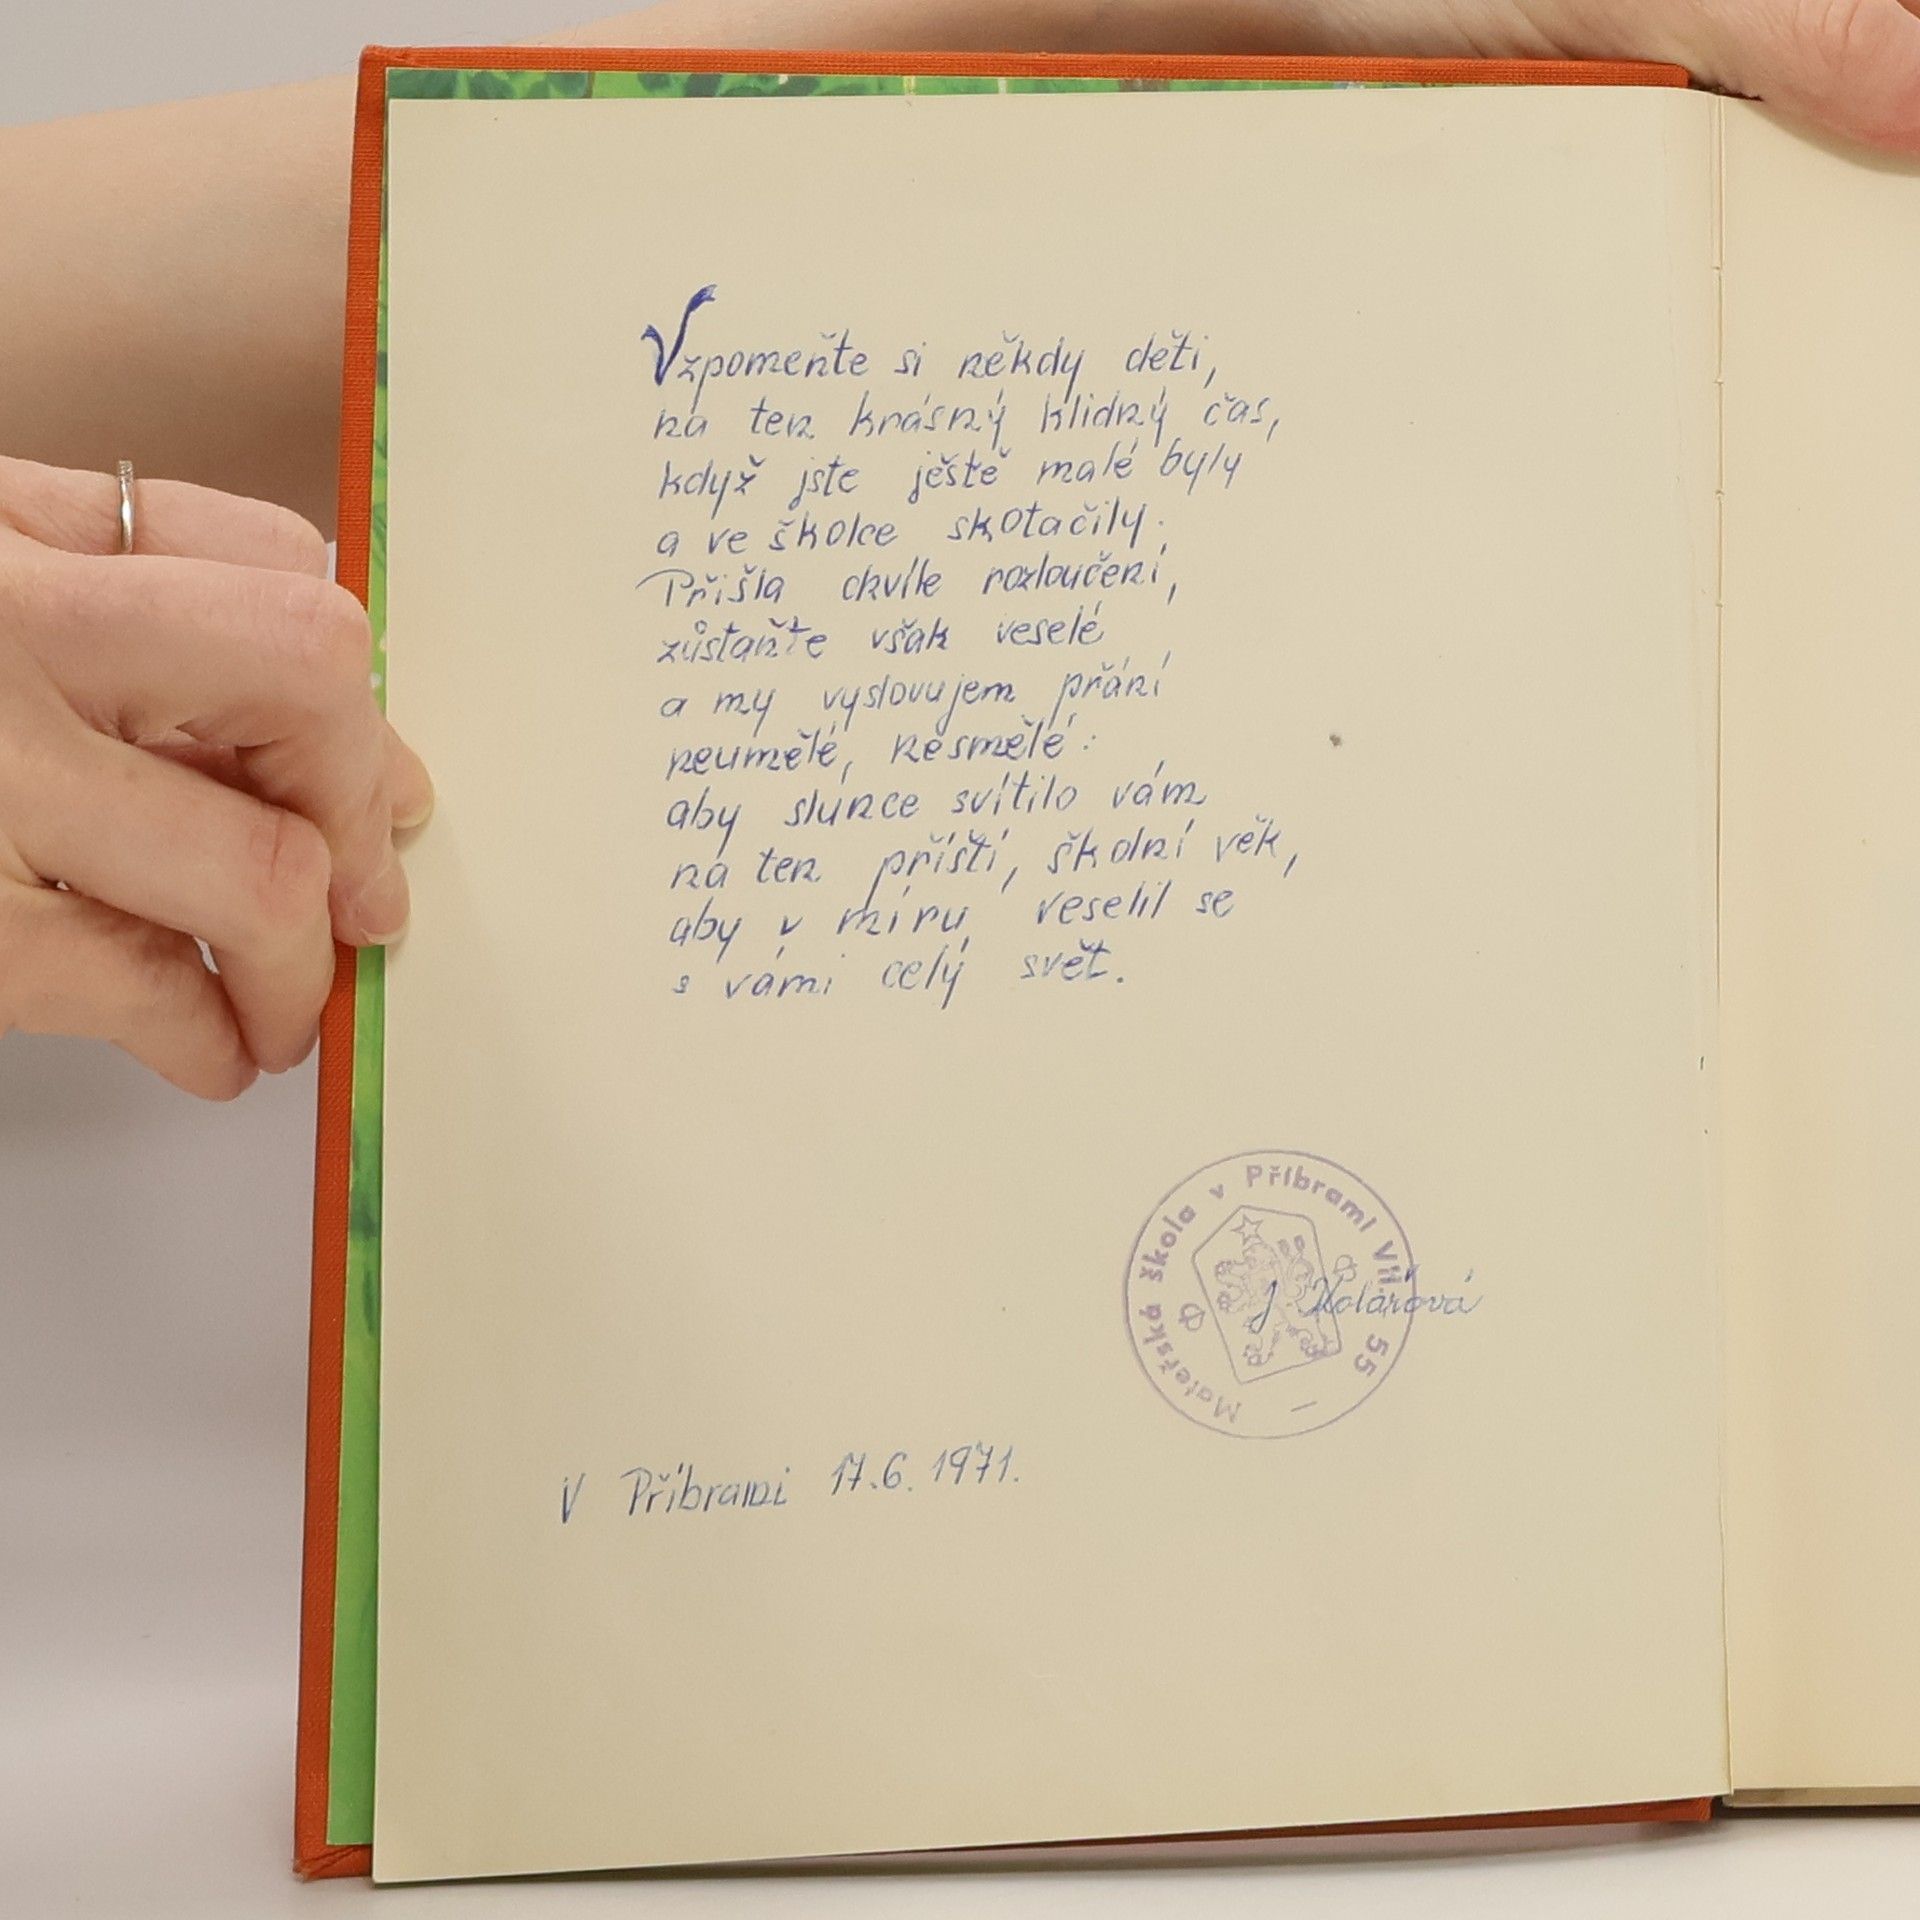 Vzpomeňte si někdy děti,
na ten krásný klidný čas,
když jste ještě malé byly
a ve školce skotačily.
Přišla chvíle rozloučení,
zůstaňte však veselé
a my vyslovujem přání
neumělé, nesmělé:
aby slunce svítilo vám
na ten příští, školní věk,
aby v míru veselil se
s vámi celý svět.
Mateřská škola v Příbrami VII - 55
J. Kolářová
V Příbrami 17.6.1971.